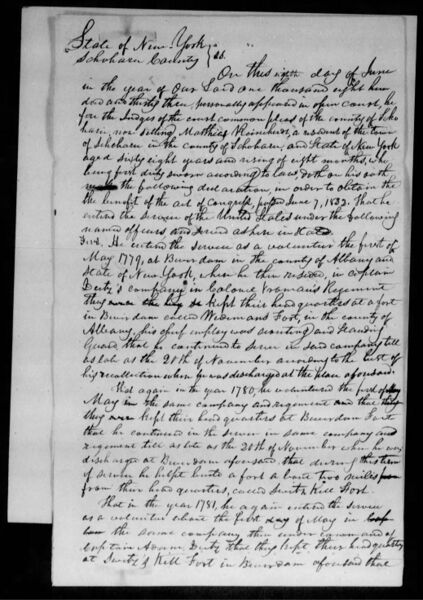 State of New-York
Schoharie County } ss.
On this eighth day of June
in the year of Our Lord one thousand eight hun
dred and thirty three, personally appeared in open court, be
fore the Judges of the court common pleas of the county of Scho
harie, now sitting, Matthias a resident of the town
of Schoharie in the county of Schoharie, and State of New York
aged sixty eight years and rising of eight months, who
being first duly sworn according to law, doth on his oath
make the following declaration, in order to obtain the
the benefit of the act of Congress, passed June 7, 1832. That he
entered the service of the United States under the following
named officers and served as herein stated
First. He entered the service as a volunteer the first of
May 1779, at Beverdam in the county of Albany and
State of New York, where he then resided, in captain
company in Colonel Vromans Regiment
they kept their head quarters at a fort
in Beverdam called Fort, in the county of
Albany, his chief employ was scouting and standing
Guard, that he continued to serve in said company till
as late as the 28th of November according to the best of
his recollection when he was discharged at the place aforesaid.
That again in the year 1780, he volunteered the first of
May in the same company and regiment and that
they kept their head quarters at Beverdam Fort
that he continued in the service in same company and
regiment till as late as the 28th of November when he was
discharged at Beverdam aforesaid, that during this term
of service he helpt build a fort a bout two miles
from their head quarters, called Kill Fort.
That in the year 1781, he again entered the service
as a volunteer about the first day of May in
the same company then under
captain Adam that they kept their head quarters
at Kill Fort in Beverdam aforesaid that